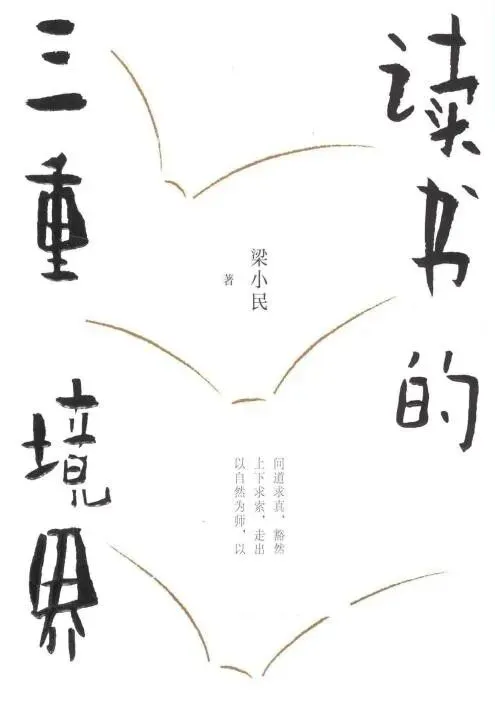 读书的
三重境界
梁小民
著
问道求真，豁然
上下求索，走出
以自然为师，以